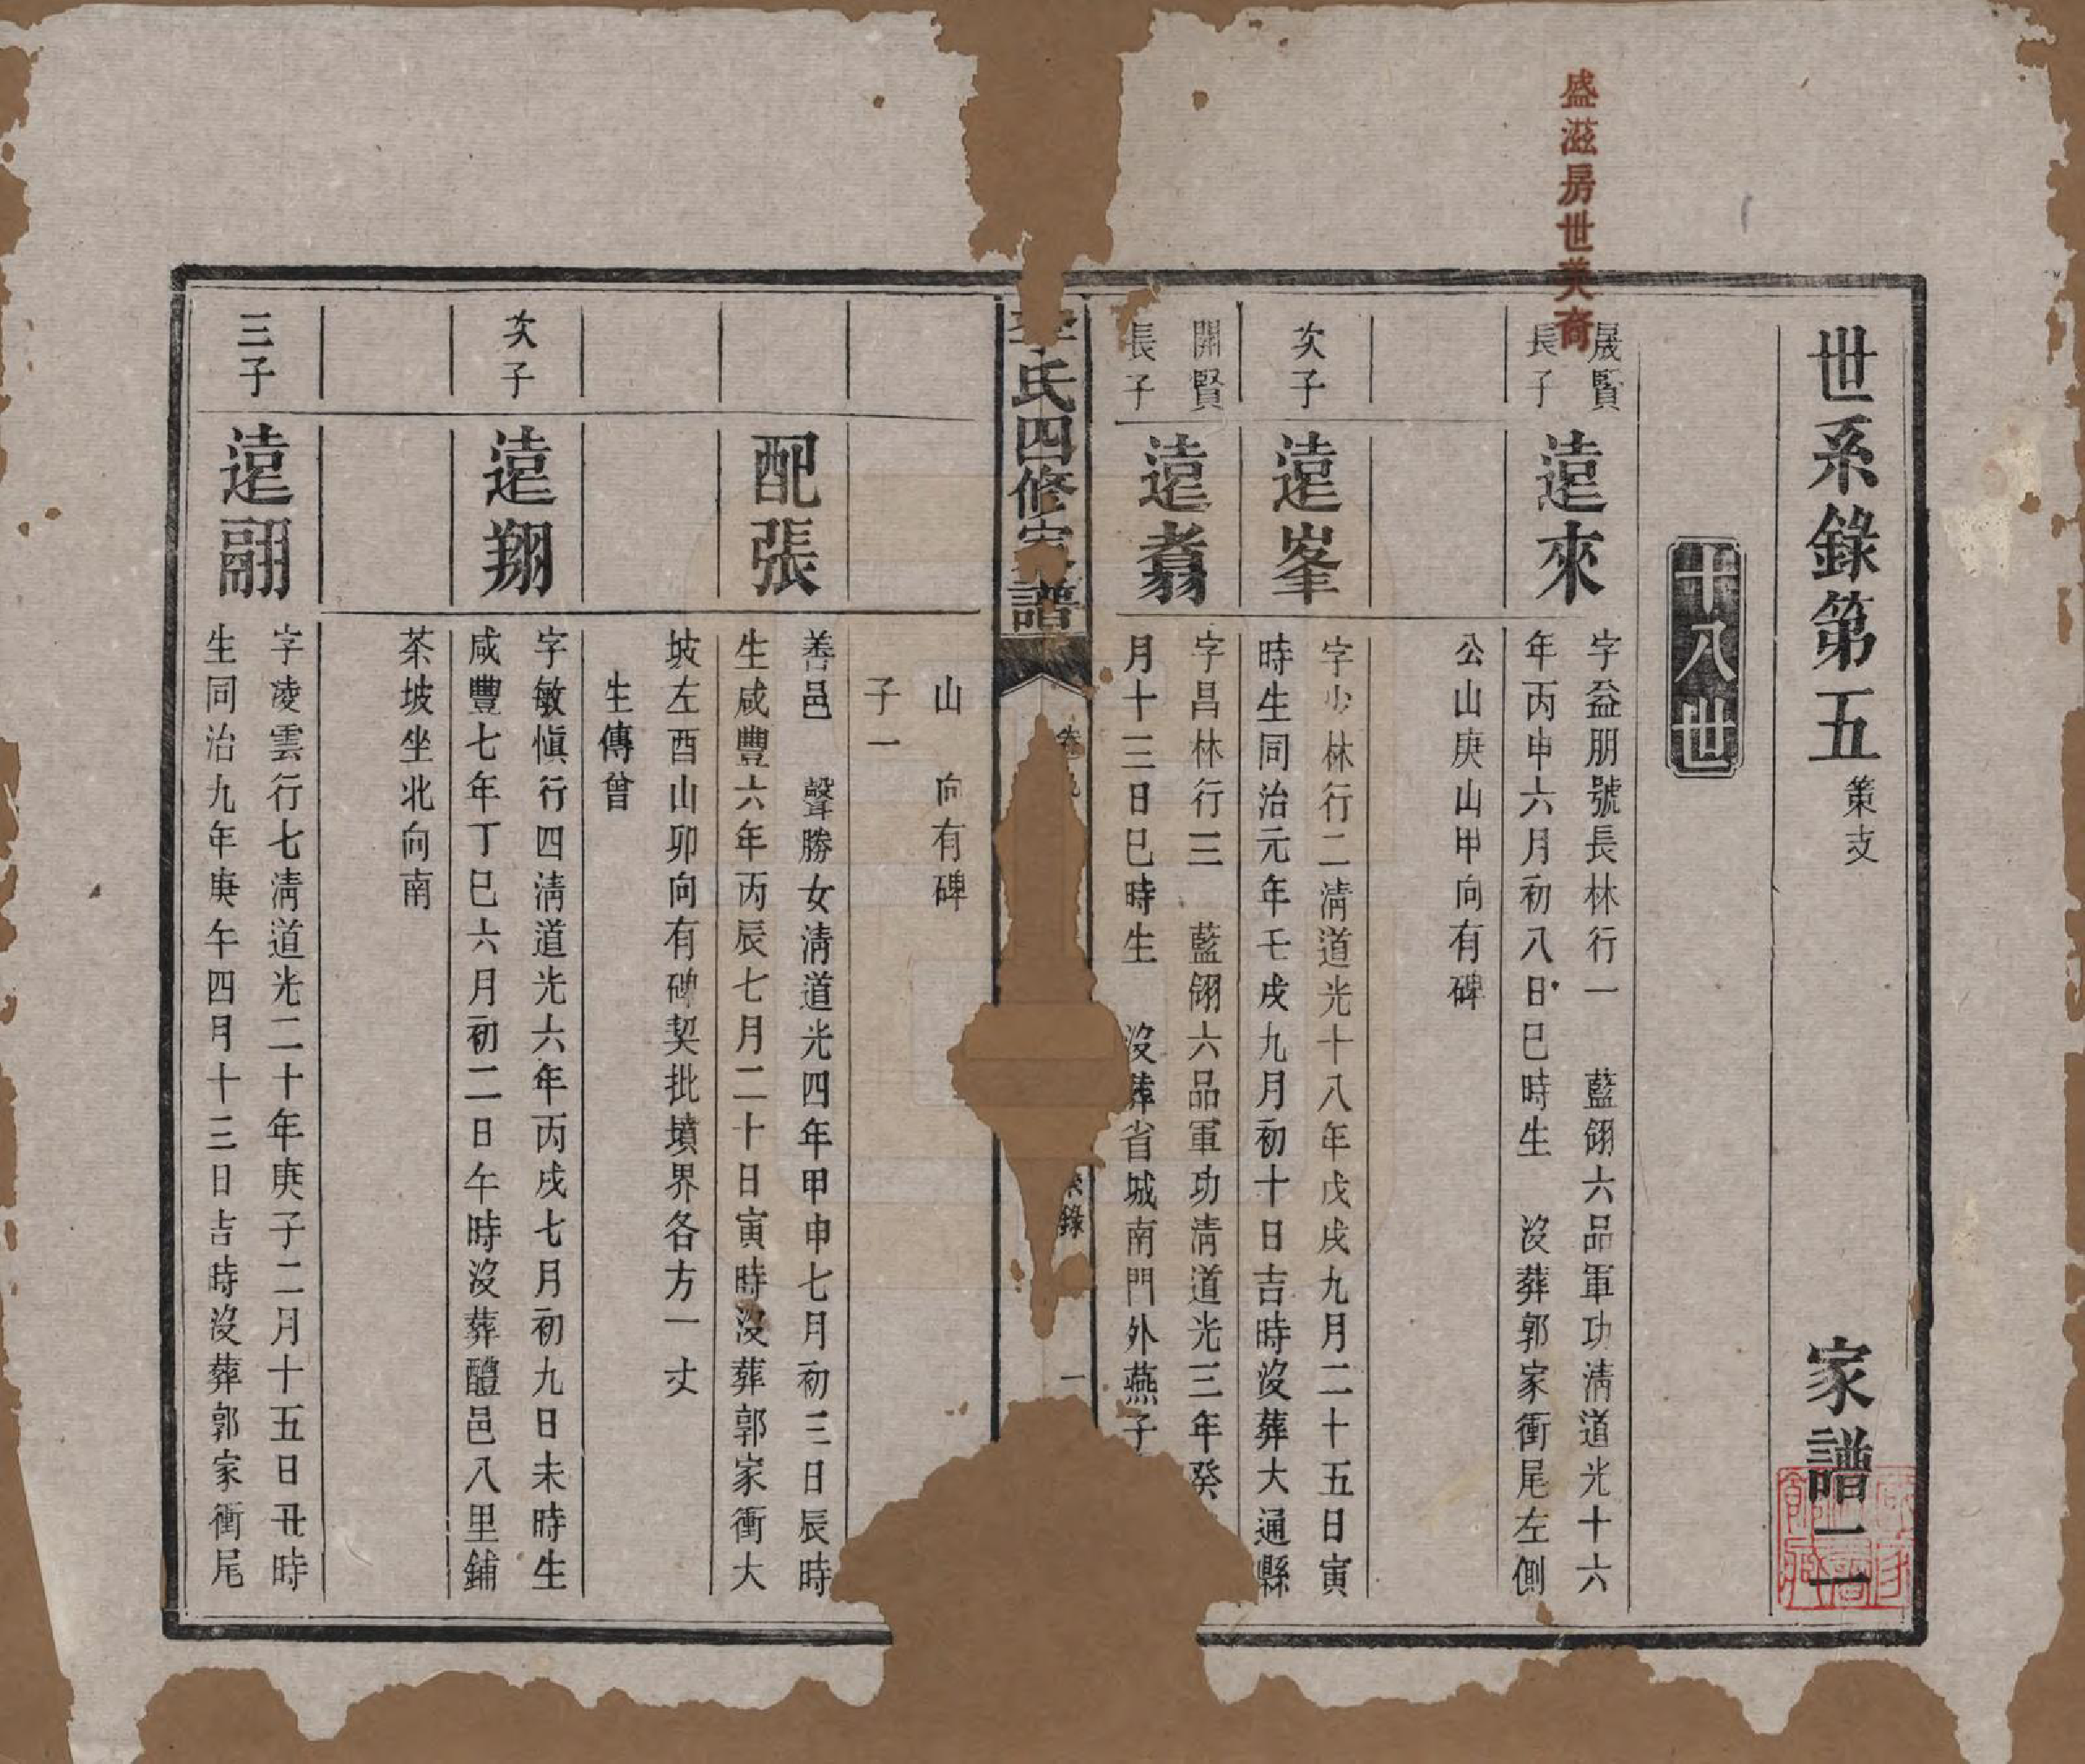 盛滋房世美裔
世系錄第五 策支 家譜二一
十八世
晟賢
長子
遠來
字益朋號長林行一 藍翎六品軍功淸道光十六
年丙申六月初八日巳時生 沒葬郭家衝尾左側
公山庚山甲向有碑
次子
遠峯
字少林行二淸道光十八年戊戌九月二十五日寅
時生同治元年壬戌九月初十日吉時沒葬大通縣
開賢
長子
遠翥
字昌林行三 藍翎六品軍功淸道光三年癸
月十三日巳時生 沒葬省城南門外燕子
李氏四修家譜
系錄 一
山 向有碑
子一
配張
善邑 聲勝女淸道光四年甲申七月初三日辰時
生咸豐六年丙辰七月二十日寅時沒葬郭家衝大
坡左酉山卯向有碑契批墳界各方一丈
生傳曾
次子
遠翔
字敏愼行四淸道光六年丙戌七月初九日未時生
咸豐七年丁巳六月初二日午時沒葬醴邑八里鋪
茶坡坐北向南
三子
遠翮
字凌雲行七淸道光二十年庚子二月十五日丑時
生同治九年庚午四月十三日吉時沒葬郭家衝尾